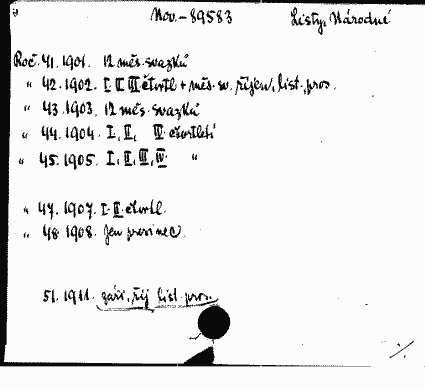 Nov.-89583 Listy, Národné
Roč. 41. 1901. 12 měs. svazků
" 42. 1902. I. II. III čtvrtl + měs. sv. říjen, list., pros.
" 43. 1903. 12 měs. svazků
" 44. 1904. I., II., IV čtvrtletí
" 45. 1905. I., II., III., IV. "
" 47. 1907. I. II. čtvrtl.
" 48. 1908. Jen prosinec.
51. 1911. září, říj. list. pros.
./.